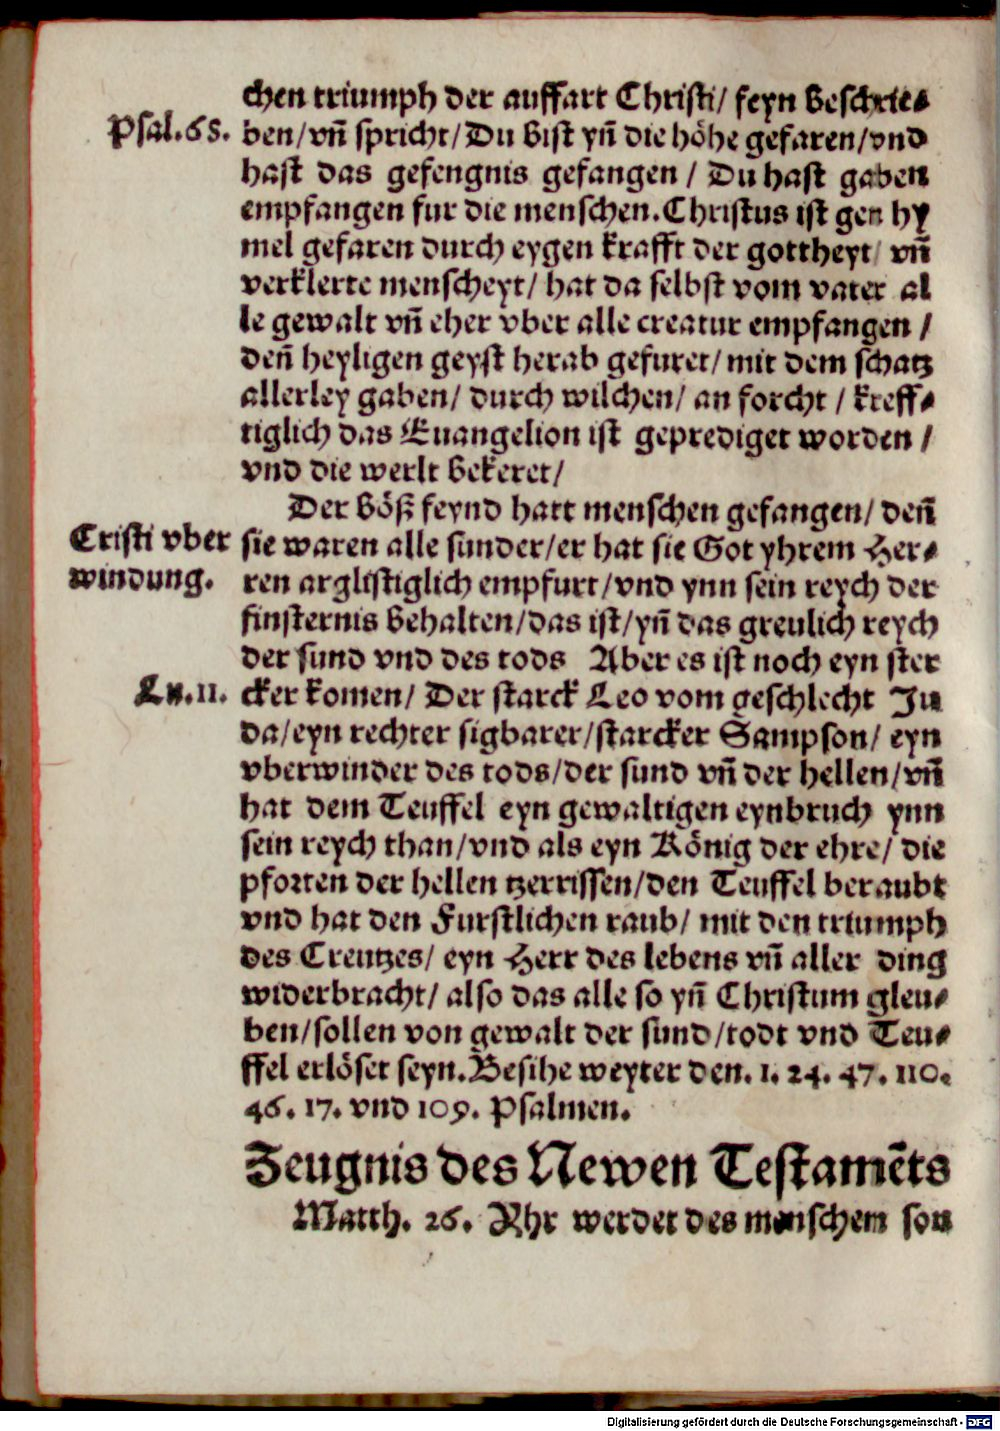 chen triumph der auffart Christi/ feyn beschrie⸗
Psal.68.
ben/vñ spricht/Du bist yñ die höhe gefaren/vnd
hast das gefengnis gefangen / Du hast gaben
empfangen fur die menschen.Christus ist gen hy
mel gefaren durch eygen krafft der gottheyt/ vñ
verklerte menscheyt/ hat da selbst vom vater al
le gewalt vñ eher vber alle creatur empfangen /
deñ heyligen geyst herab gefuret/ mit dem schatz
allerley gaben/ durch wilchen/ an forcht / kreff⸗
tiglich das Euangelion ist geprediget worden /
vnd die werlt bekeret/
Der böß feynd hatt menschen gefangen/ deñ
Cristi vber
windung.
sie waren alle sunder/er hat sie Got yhrem Her⸗
ren arglistiglich empfurt/vnd ynn sein reych der
finsternis behalten/das ist/yñ das greulich reych
der sund vnd des tods Aber es ist noch eyn ster
Lu.11.
cker komen/ Der starck Leo vom geschlecht Ju
da/eyn rechter sigbarer/starcker Sampson/ eyn
vberwinder des tods/der sund vñ der hellen/vñ
hat dem Teuffel eyn gewaltigen eynbruch ynn
sein reych than/vnd als eyn König der ehre/ die
pforten der hellen tzerrissen/den Teuffel beraubt
vnd hat den Furstlichen raub/ mit den triumph
des Creutzes/ eyn Herr des lebens vñ aller ding
widerbracht/ also das alle so yñ Christum gleu⸗
ben/sollen von gewalt der sund/todt vnd Teu⸗
ffel erlöset seyn.Besihe weyter den. 1. 24. 47. 110.
46. 17. vnd 109. Psalmen.
Zeugnis des Newen Testamēts
Matth. 26. Yhr werdet des menschen son
Digitalisierung gefördert durch die Deutsche Forschungsgemeinschaft - DFG